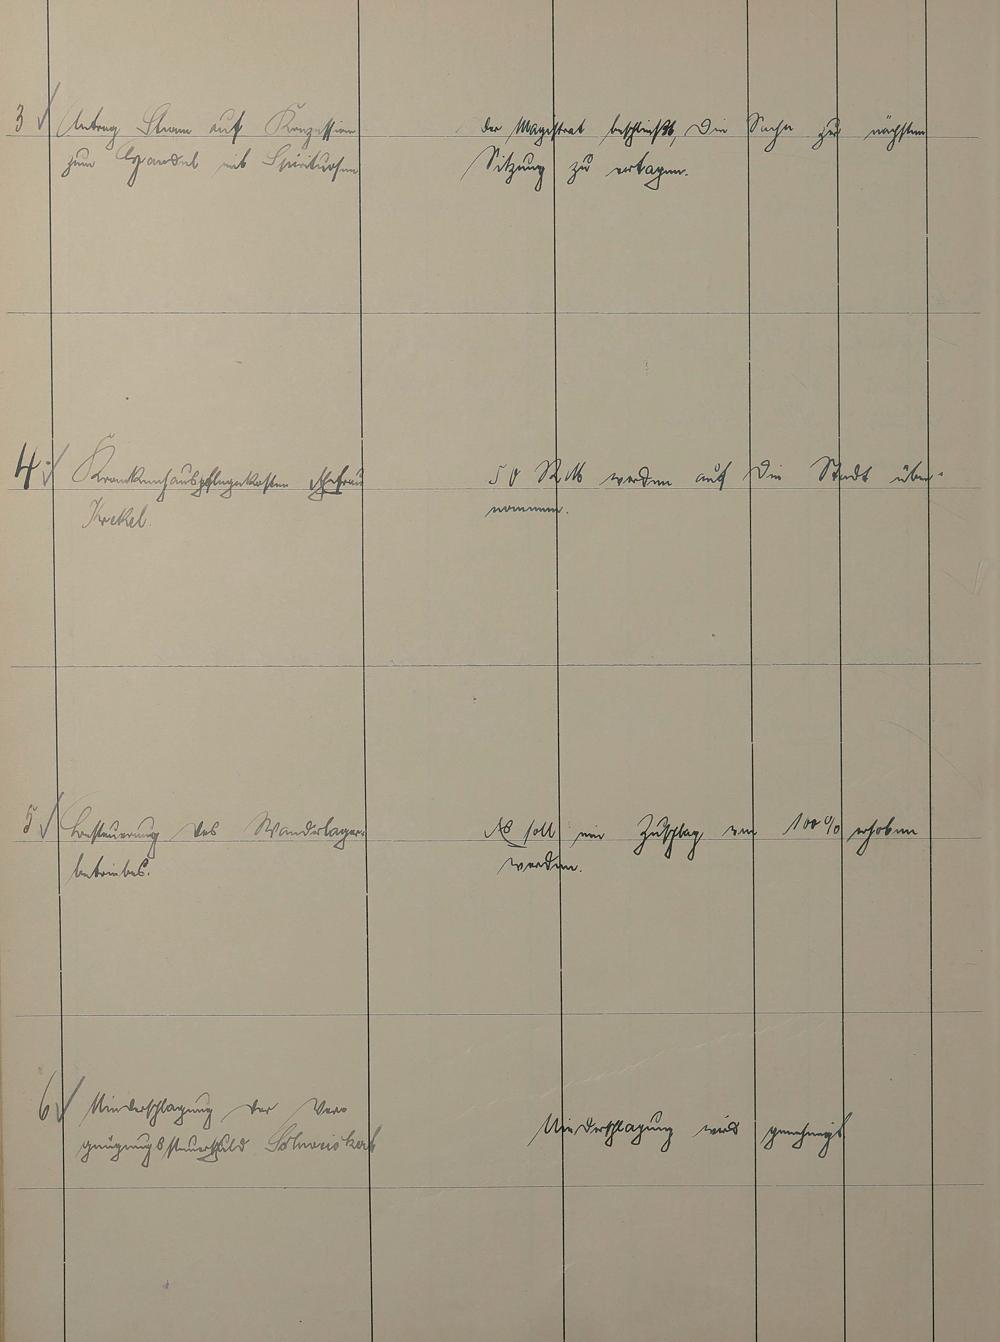 3 Antrag Sturm auf Konzession
zum Handel mit Spirituosen
der Magistrat beschließt, die Sache zur nächsten
Sitzung zu vertagen.
4. Krankenhauspflegekosten Ehefrau
Krekel.
50 RM werden auf die Stadt über-
nommen.
5 Besteuerung des Wanderlager-
betriebes.
Es soll ein Zuschlag von 100% erhoben
werden.
6 Niederschlagung der Ver-
gnügungssteuerschuld
Niederschlagung wird genehmigt